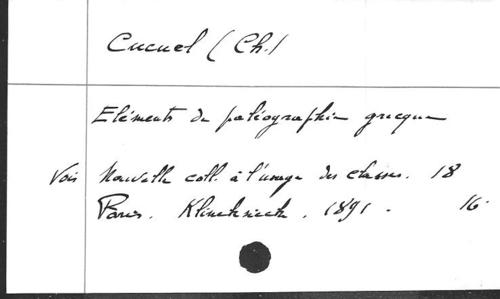 Cucuel (Ch.)
Eléments de paléographie grecque
Voir Nouvelle coll. à l'usage des classes. 18
Paris. Klincksieck. 1891. 16.